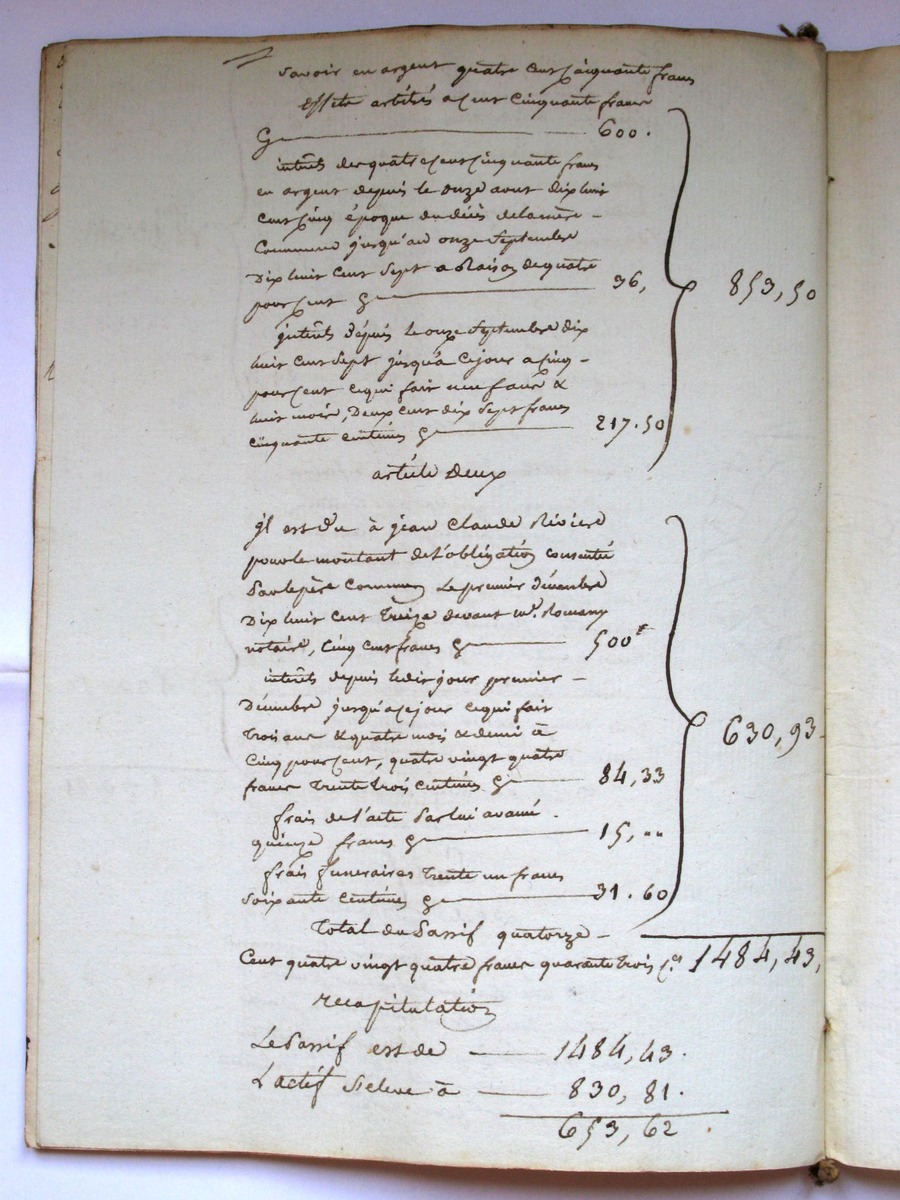 savoir en argent quatre cent cinquante francs
effets a cent cinquante francs
Cy 600.
intérêts des quatre cent cinquante francs
en argent depuis le onze aout dix huit
cent cinq époque du décès de la mère
commune jusqu'au onze septembre
dix huit cent sept a raison de quatre
pour cent Cy 36,
853,50
intérêts depuis le onze septembre dix
huit cent sept jusqu'a ce jour a cinq
pour cent ce qui fait neuf ans &
huit mois, deux cent dix sept francs
cinquante centimes Cy 217.50
article deux
il est du à jean Claude Rivière
pour le montant de l'obligation consentie
par le père commun le premier décembre
dix huit cent treize devant mr. Romany
notaire, cinq cent francs Cy 500f
intérêts depuis le dit jour premier
décembre jusqu'a ce jour ce qui fait
trois ans & quatre mois & demi à
cinq pour cent, quatre vingt quatre
francs trente trois centimes Cy 84,33
630,93
frais de l'acte par lui avancé
quinze francs Cy 15,""
frais funeraires trente un francs
soixante centimes Cy 31.60
Total du Passif quatorze
Cent quatre vingt quatre francs quarante trois Cs 1484,43,
recapitulation
Le Passif est de 1484,43.
L'actif s'eleve à 830,81.
653,62.